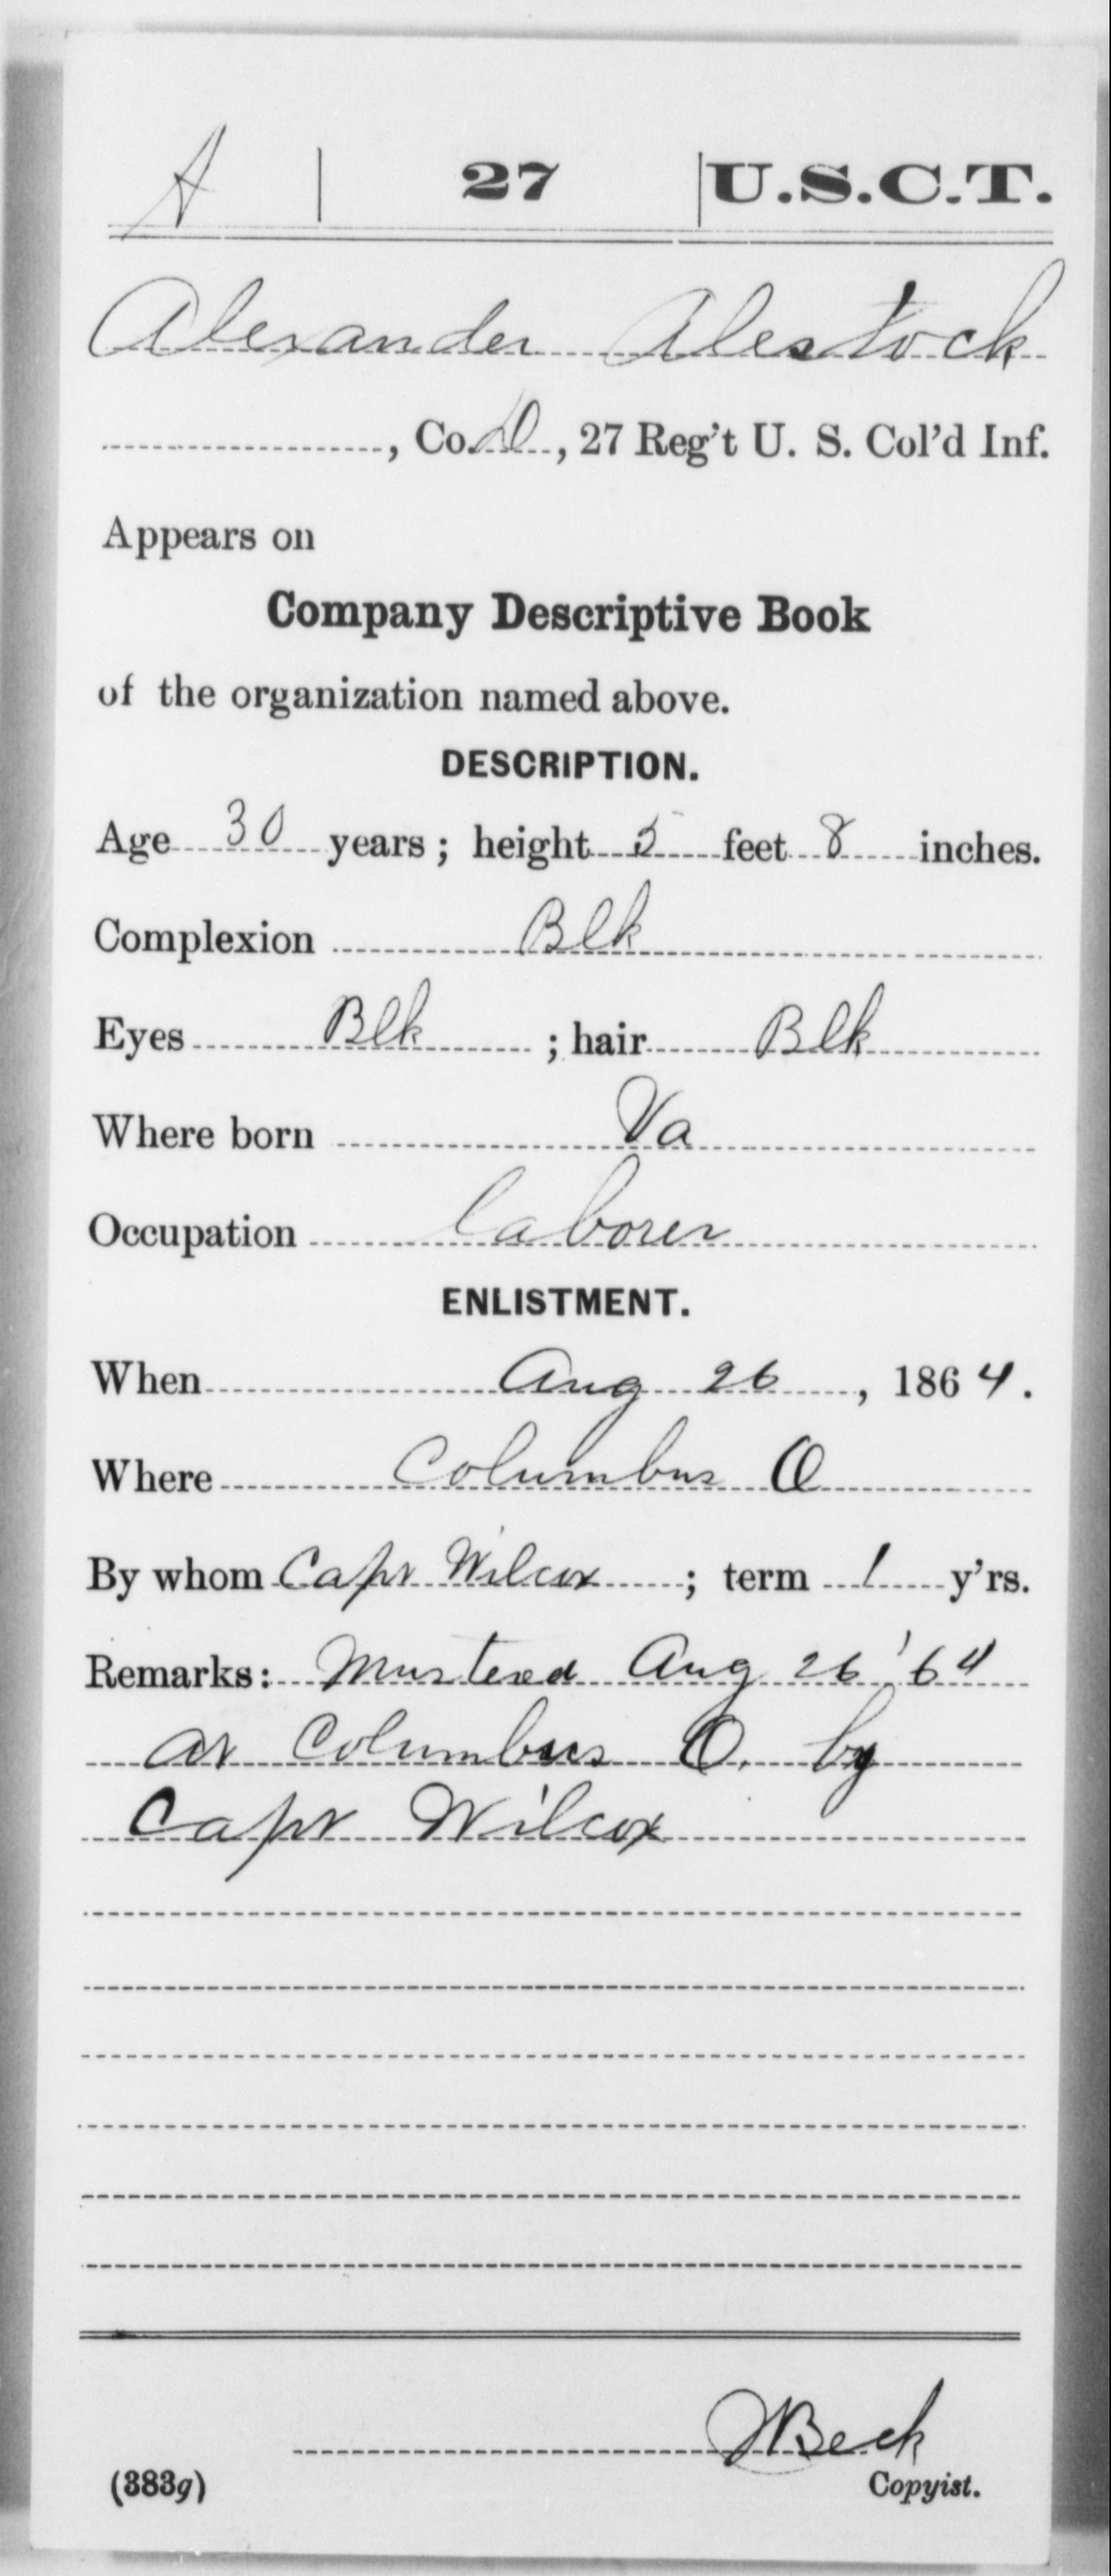 A | 27 | U.S.C.T.
Alexander Alestock
, Co. D, 27 Reg't U. S. Col'd Inf.
Appears on
Company Descriptive Book
of the organization named above.
DESCRIPTION.
Age 30 years; height 5 feet 8 inches.
Complexion Blk
Eyes Blk ; hair Blk
Where born Va
Occupation laborer
ENLISTMENT.
When Aug 26, 1864.
Where Columbus O
By whom Capt Wilcox; term 1 y'rs.
Remarks: Mustered Aug 26 '64
at Columbus O. by
Capt Wilcox
JBeck
(383g) Copyist.